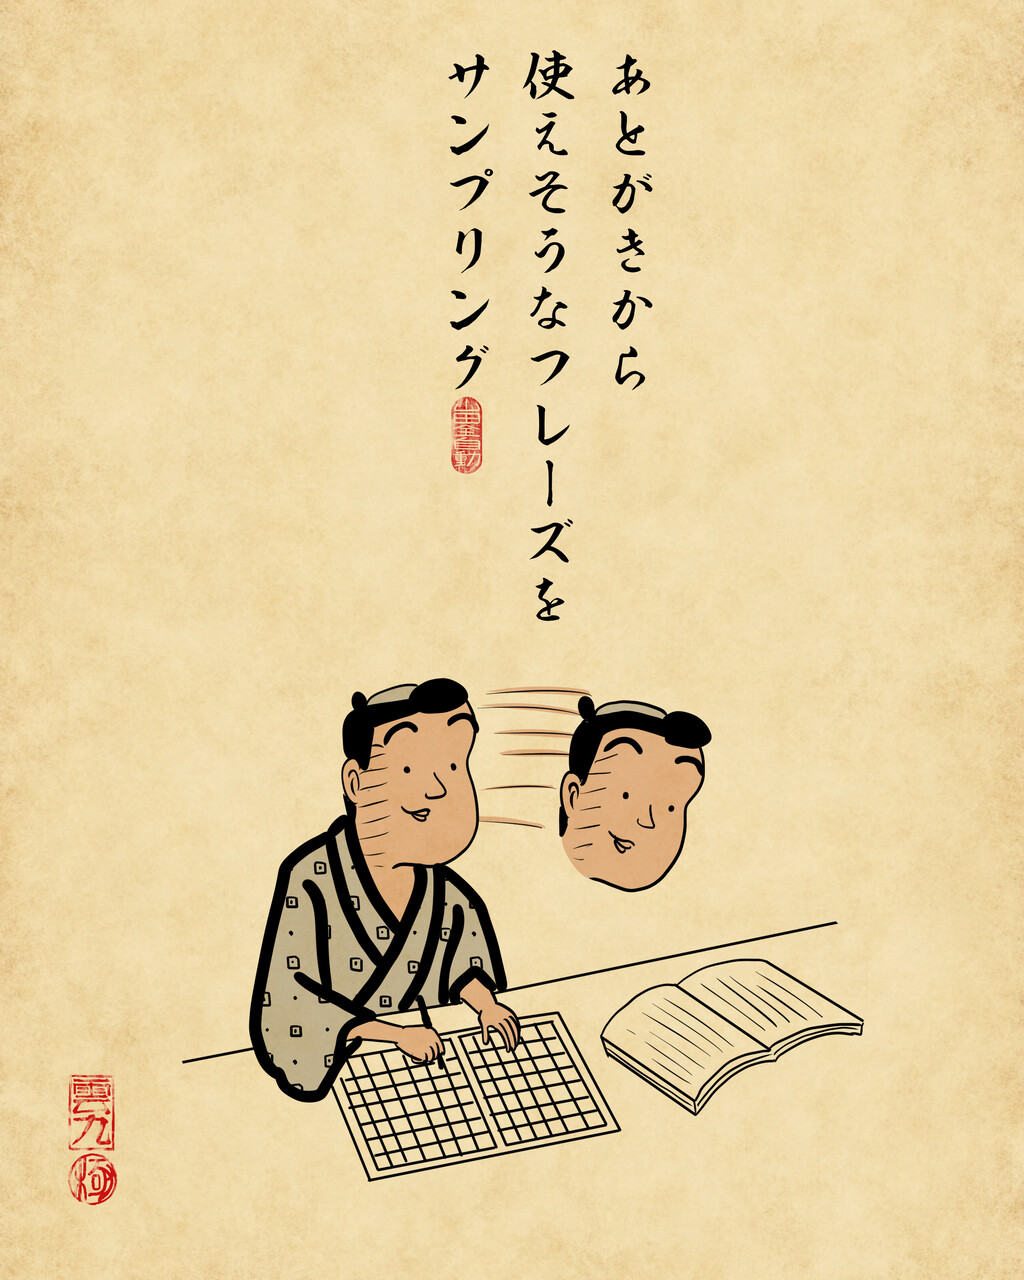 あとがきから
使えそうなフレーズを
サンプリング
雲九
極